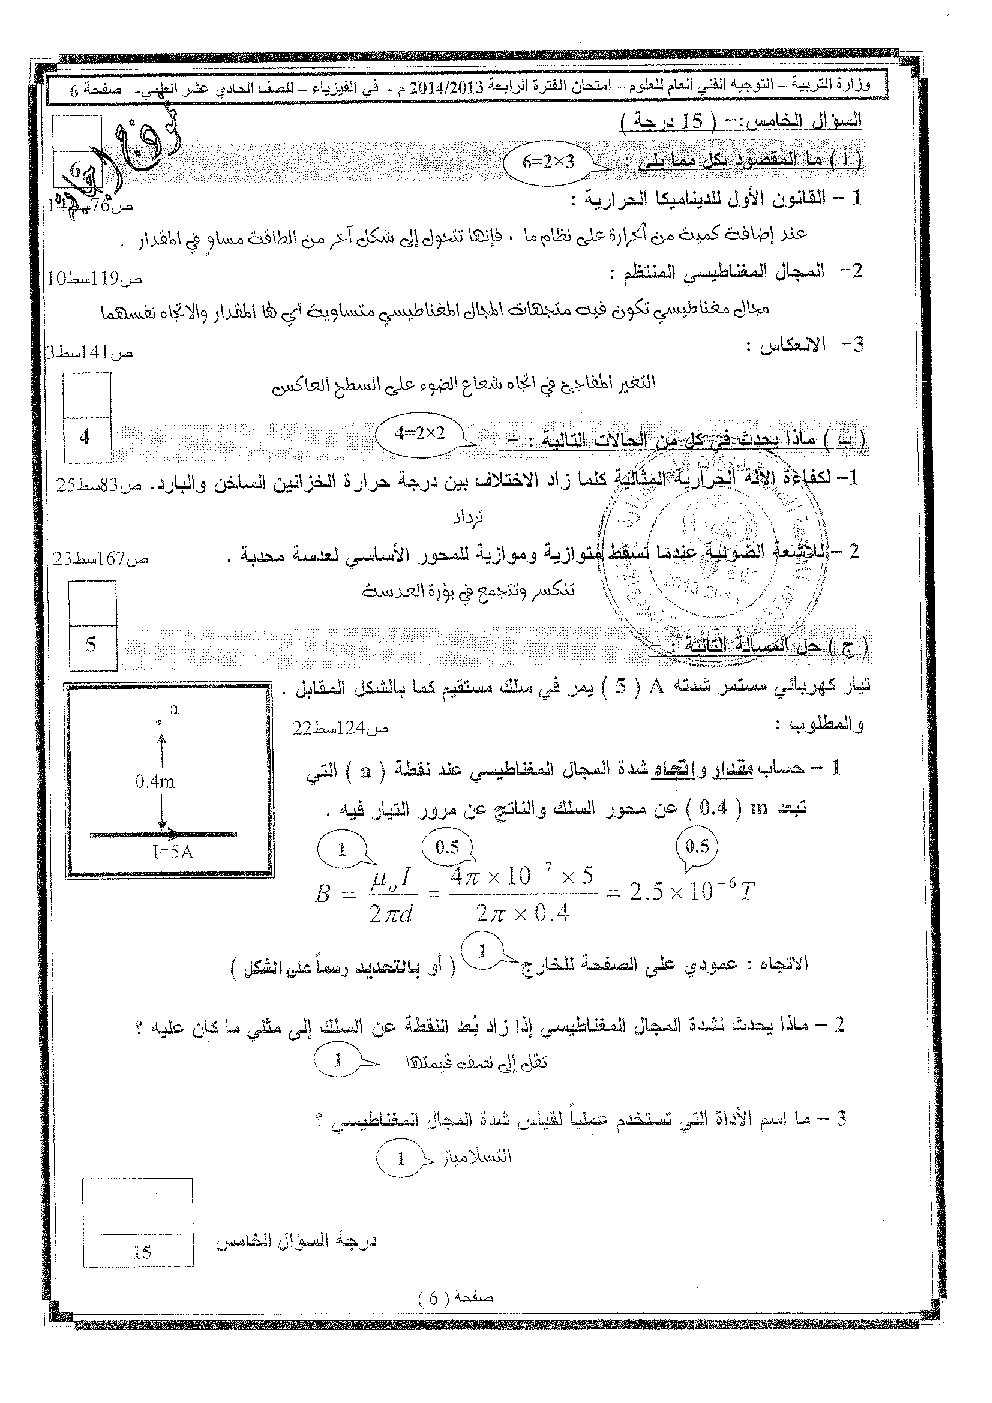 وزارة التربية – التوجيه الفني العام للعلوم – امتحان الفترة الرابعة 2014/2013 م - في الفيزياء – للصف الحادي عشر العلمي- صفحة 6
السؤال الخامس:- ( 15 درجة )
( أ ) ما المقصود بكل مما يلي : 6=2×3
6
1 – القانون الأول للديناميكا الحرارية :
عند إضافة كمية من الحرارة على نظام ما ، فإنها تتحول إلى شكل آخر من الطاقة مساو في المقدار .
2- المجال المغناطيسي المنتظم : ص119سط10
مجال مغناطيسي تكون فيه متجهات المجال المغناطيسي متساوية أي لها المقدار والاتجاه نفسهما
3- الانعكاس : ص141سط3
التغير المفاجئ في اتجاه شعاع الضوء على السطح العاكس
( ب ) ماذا يحدث في كل من الحالات التالية : - 4=2×2
4
1- لكفاءة الآلة الحرارية المثالية كلما زاد الاختلاف بين درجة حرارة الخزانين الساخن والبارد. ص83سط25
تزداد
2 – للأشعة الضوئية عندما تسقط متوازية وموازية للمحور الأساسي لعدسة محدبة . ص167سط23
تنكسر وتتجمع في بؤرة العدسة
5
( ج ) حل المسألة التالية :
تيار كهربائي مستمر شدته A ( 5 ) يمر في سلك مستقيم كما بالشكل المقابل .
والمطلوب : ص124سط22
a
0.4m
I=5A
1 – حساب مقدار واتجاه شدة المجال المغناطيسي عند نقطة ( a ) التي
تبعد m ( 0.4 ) عن محور السلك والناتج عن مرور التيار فيه .
1 0.5 0.5
B = μ₀I / 2πd = 4π × 10⁻⁷ × 5 / 2π × 0.4 = 2.5 × 10⁻⁶ T
الاتجاه : عمودي على الصفحة للخارج 1 ( أو بالتحديد رسماً على الشكل )
2 – ماذا يحدث لشدة المجال المغناطيسي إذا زاد بُعد النقطة عن السلك إلى مثلي ما كان عليه ؟
تقل إلى نصف قيمتها 1
3 – ما اسم الأداة التي تستخدم عملياً لقياس شدة المجال المغناطيسي ؟
التسلاميتر 1
درجة السؤال الخامس
15
صفحة ( 6 )